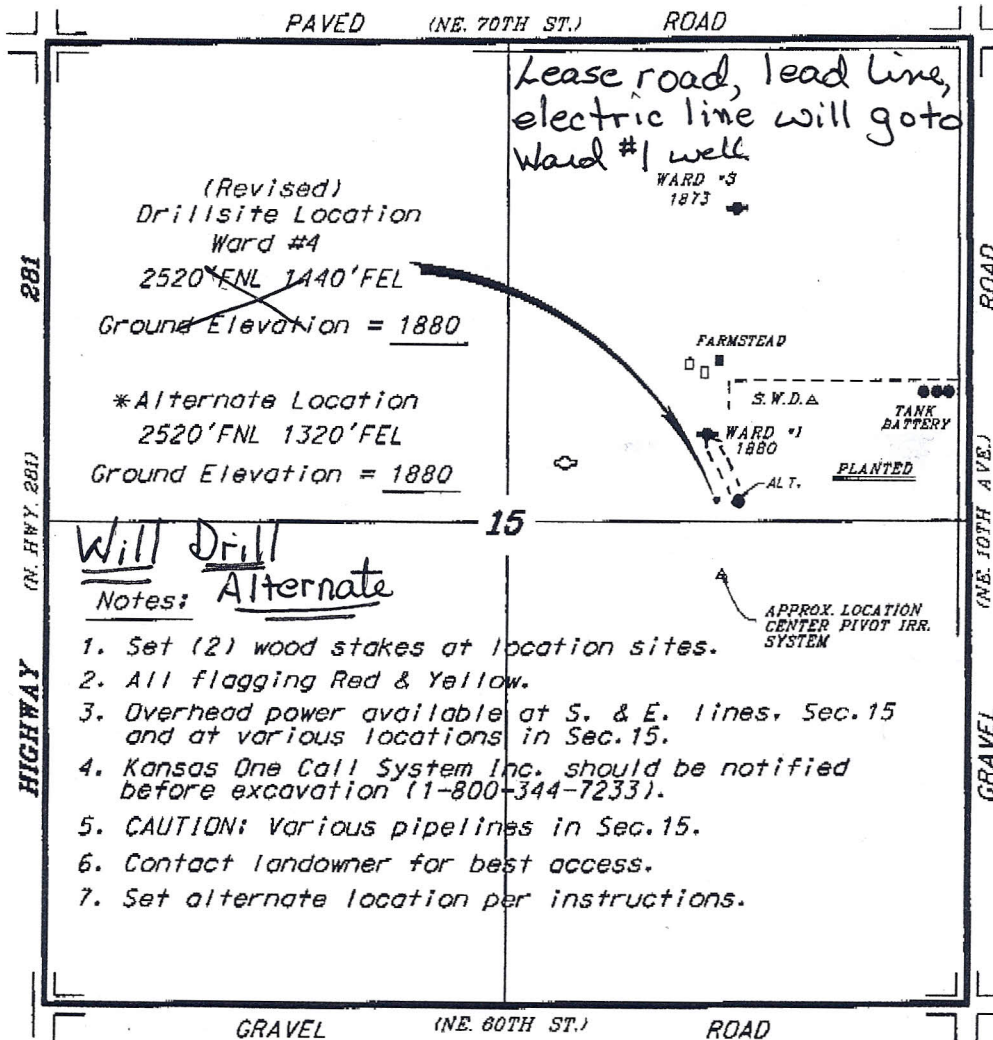 PAVED (NE. 70TH ST.) ROAD
Lease road, lead line,
electric line will go to
Ward #1 well
WARD #3
1873
(Revised)
Drillsite Location
Ward #4
2520'FNL 1440'FEL
Ground Elevation = 1880
*Alternate Location
2520'FNL 1320'FEL
Ground Elevation = 1880
FARMSTEAD
S.W.D.
TANK
BATTERY
WARD #1
1880
PLANTED
ALT.
15
281
(N. HWY. 281)
HIGHWAY
ROAD
(NE. 10TH AVE.)
GRAVEL
Will Drill
Alternate
APPROX. LOCATION
CENTER PIVOT IRR.
SYSTEM
Notes:
1. Set (2) wood stakes at location sites.
2. All flagging Red & Yellow.
3. Overhead power available at S. & E. lines, Sec.15
and at various locations in Sec.15.
4. Kansas One Call System Inc. should be notified
before excavation (1-800-344-7233).
5. CAUTION: Various pipelines in Sec.15.
6. Contact landowner for best access.
7. Set alternate location per instructions.
GRAVEL (NE. 60TH ST.) ROAD